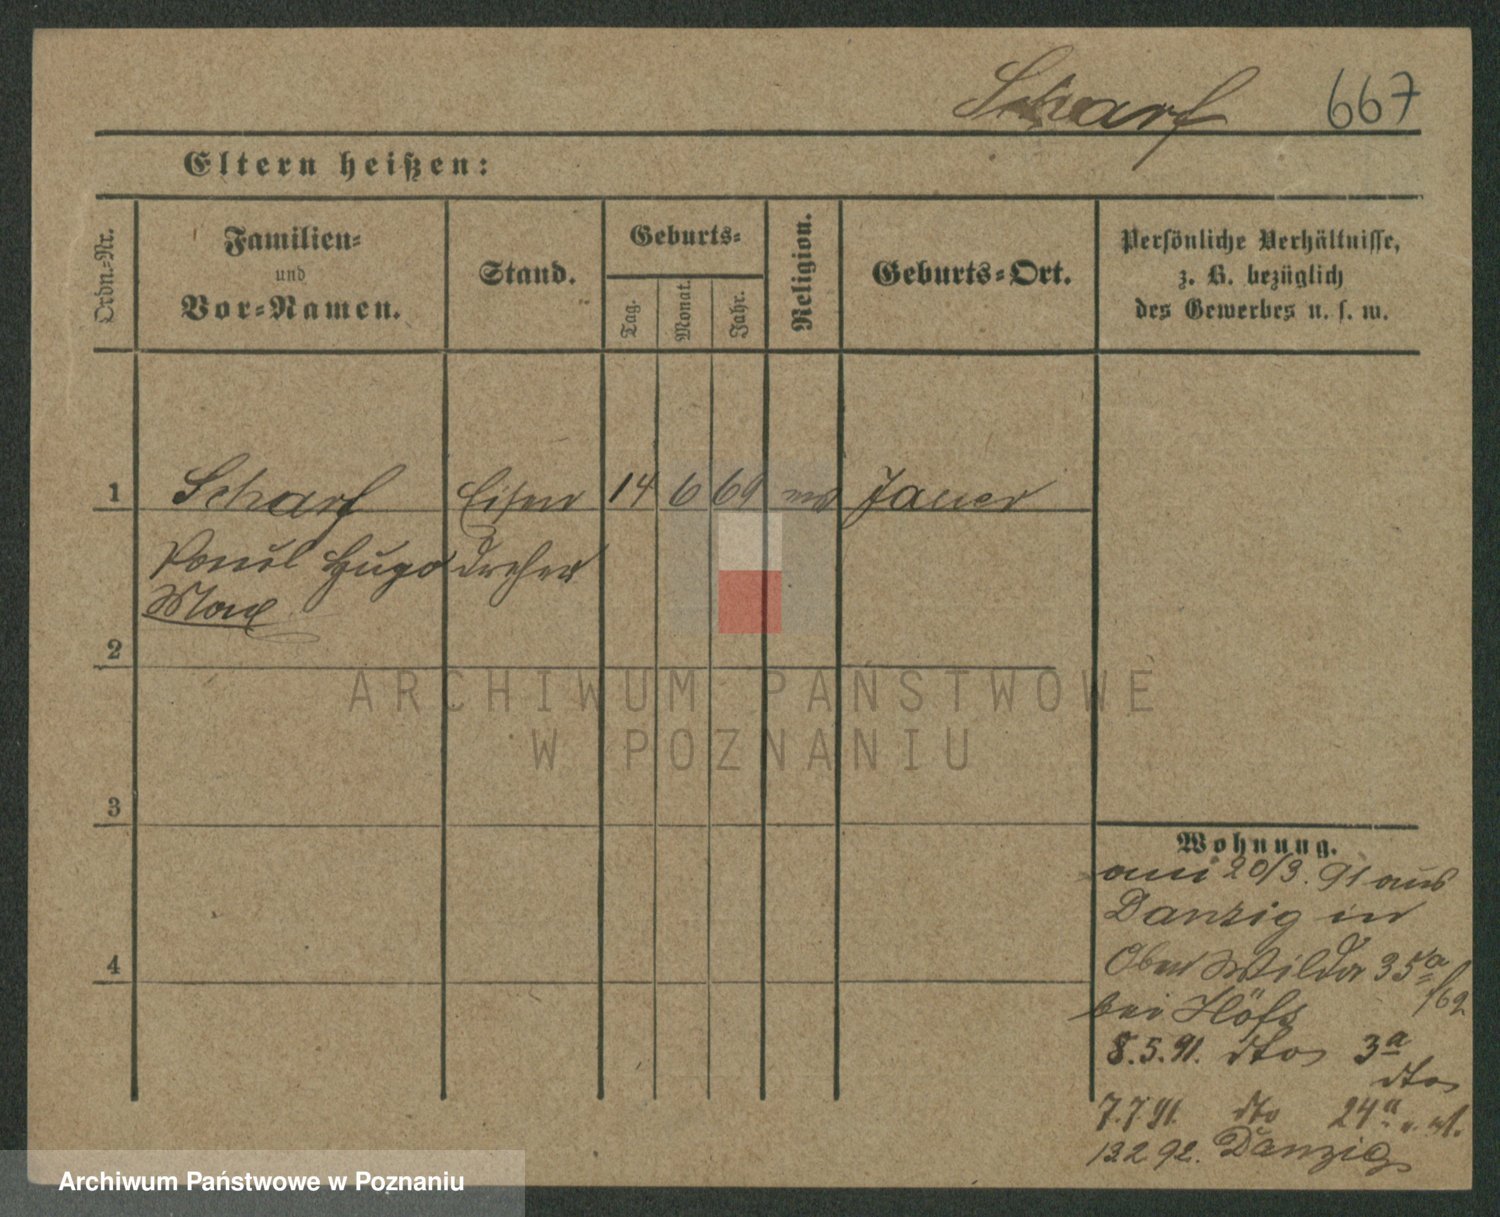 Scharf 667
Eltern heißen:
Ordn.-Nr.
Familien-
und
Vor-Namen.
Stand.
Geburts-
Tag.
Monat.
Jahr.
Religion.
Geburts-Ort.
Persönliche Verhältnisse,
z. B. bezüglich
des Gewerbes u. s. w.
1 Scharf Eisen 14 6 69 Jauer
Paul Hugo dreher
Max
2
3
4
ARCHIWUM PAŃSTWOWE
W POZNANIU
Wohnung.
am 20/3. 91 aus
Danzig in
Ober Wilda 35a
bei
8.5.91. dto 3a
dto
7.7.91. dto 24a
13.2.92. Danzig
Archiwum Państwowe w Poznaniu